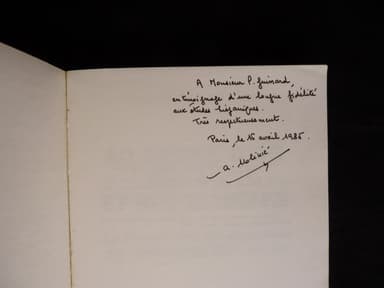 A Monsieur P. Guinard,
en témoignage d'une longue fidélité
aux études hispaniques.
Très respectueusement.
Paris, le 15 avril 1985.
A. Molinié